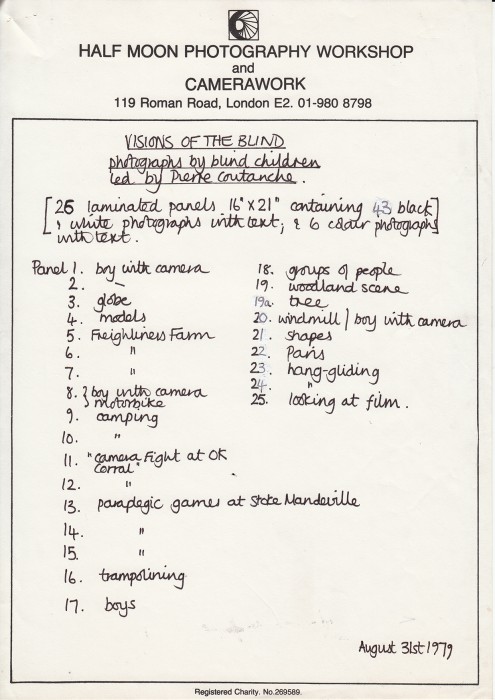 HALF MOON PHOTOGRAPHY WORKSHOP
and
CAMERAWORK
119 Roman Road, London E2. 01-980 8798
VISIONS OF THE BLIND
photographs by blind children
led by Pierre Coutanche.
[25 laminated panels 16" x 21" containing 43 black]
& white photographs with text, & 6 colour photographs
with text.
Panel 1. boy with camera
2. —
3. globe
4. models
5. Freighliners Farm
6. "
7. "
8. } boy with camera
motorbike
9. camping
10. "
11. "camera Fight at OK
Corral"
12. "
13. paraplegic games at Stoke Mandeville
14. "
15. "
16. trampolining
17. boys
18. groups of people
19. woodland scene
19a. tree
20. windmill / boy with camera
21. shapes
22. Paris
23. hang-gliding
24. "
25. looking at film.
August 31st 1979
Registered Charity. No. 269589.